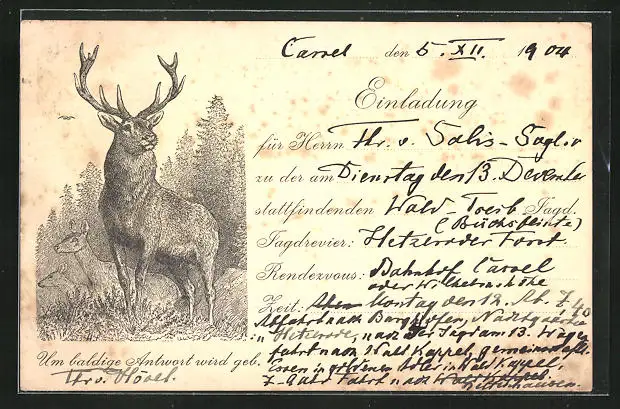 Cassel den 5. XII. 1904
Einladung
für Herrn Frh. v. Salis-Soglio
zu der am Dienstag den 13. Dezember
stattfindenden Wald-Treib Jagd.
(Büchsflinte)
Jagdrevier: Hetzeroder Forst.
Rendezvous: Bahnhof Cassel
oder Wilhelmshöhe
Zeit: Montag den 12. Ab. 7 40
Abfahrt nach Burghofen, Nachtquartier
in Hetzerode, nach der Jagd am 13. Wagen
fahrt nach Wald Kappel, gemeinschaftl.
Essen in Wald Kappel,
7 Uhr Fahrt nach
Um baldige Antwort wird geb.
Frh. v.